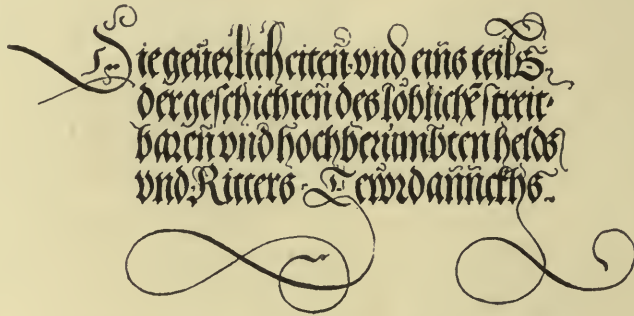 Die geüerlicheiteñ vnd eiñs teils
der geschichteñ des löblichē streit-
bareñ vnd hochberümbten helds
vnd Ritters Tewrdañnckhs.